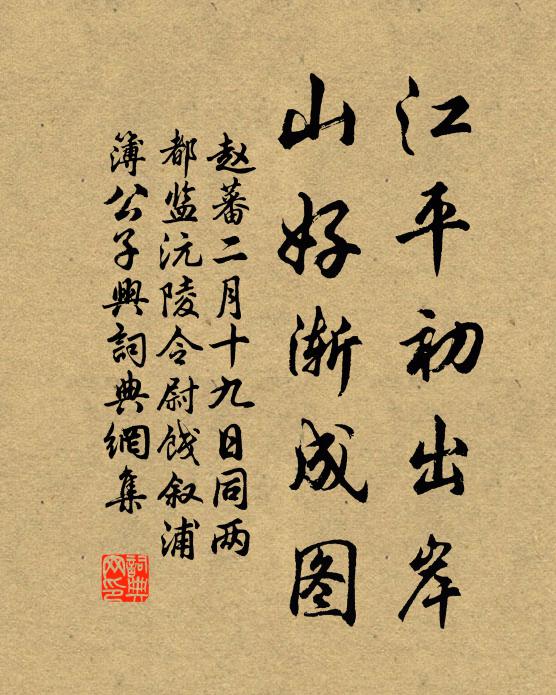 江平初出岸
山好渐成图
赵蕃二月十九日同两
都监沅陵令尉饯叙浦
簿公子興詞典網集
詞典
网印